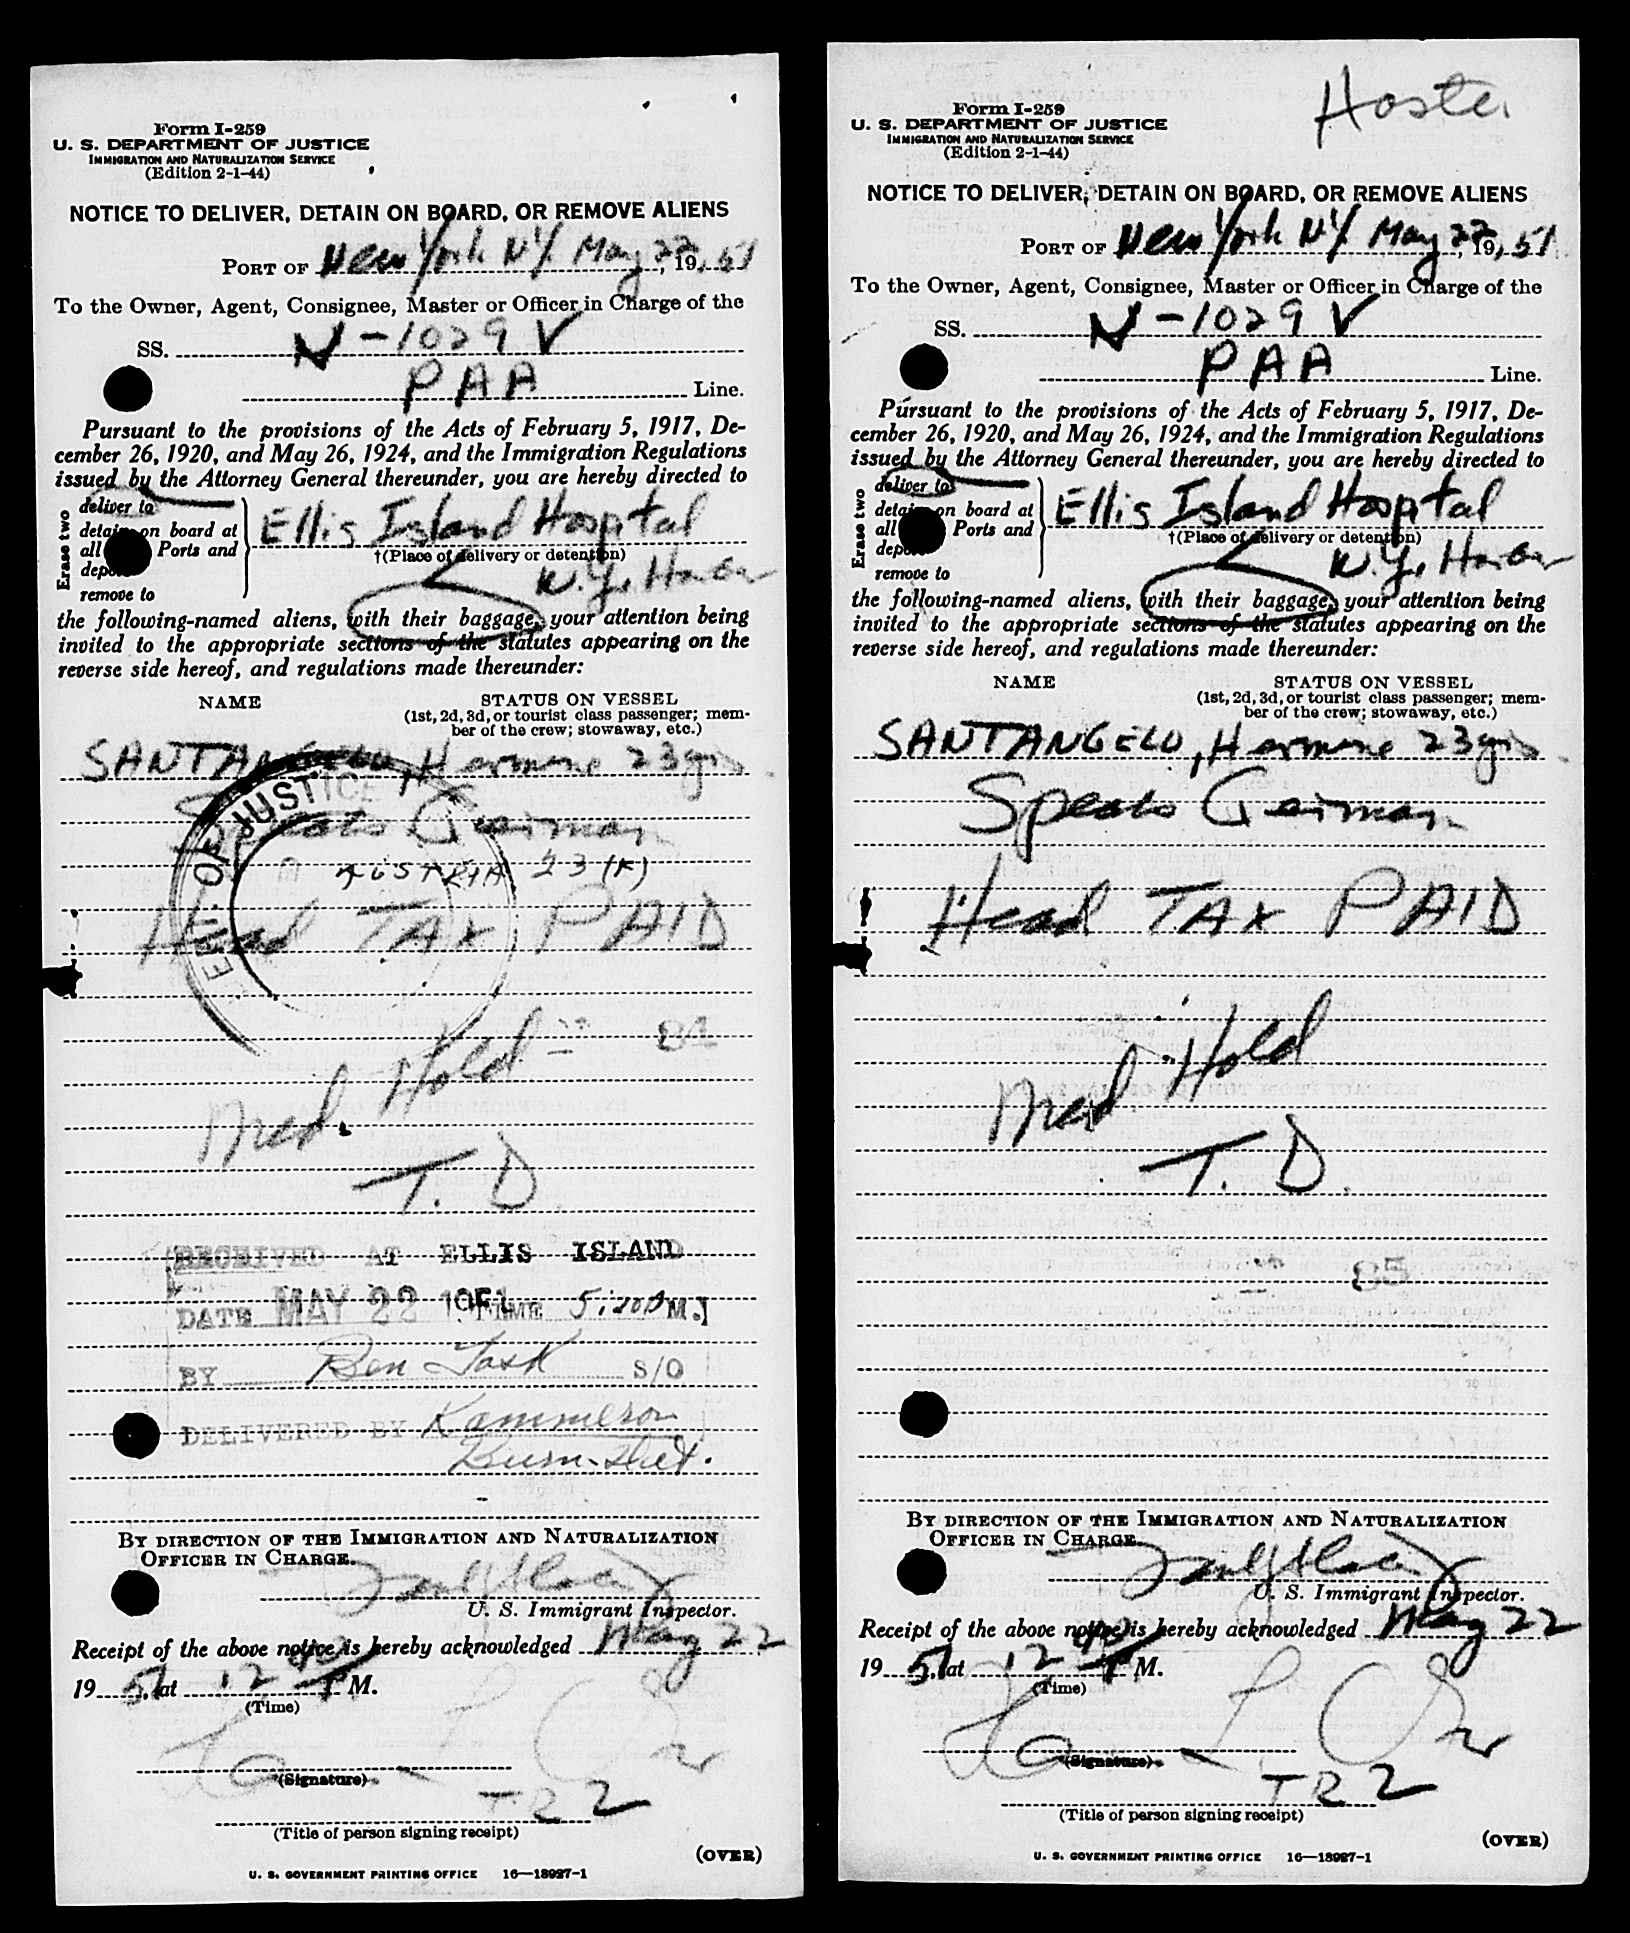 Form I-259
U. S. DEPARTMENT OF JUSTICE
IMMIGRATION AND NATURALIZATION SERVICE
(Edition 2-1-44)
NOTICE TO DELIVER, DETAIN ON BOARD, OR REMOVE ALIENS
PORT OF New York NY May 22, 1951
To the Owner, Agent, Consignee, Master or Officer in Charge of the
SS. N-1029 V
PAA Line.
Pursuant to the provisions of the Acts of February 5, 1917, De-
cember 26, 1920, and May 26, 1924, and the Immigration Regulations
issued by the Attorney General thereunder, you are hereby directed to
Erase two
deliver to
detain on board at
all Ports and
remove to
Ellis Island Hospital
†(Place of delivery or detention)
N.Y. Harbor
the following-named aliens, with their baggage, your attention being
invited to the appropriate sections of the statutes appearing on the
reverse side hereof, and regulations made thereunder:
NAME
STATUS ON VESSEL
(1st, 2d, 3d, or tourist class passenger; mem-
ber of the crew; stowaway, etc.)
SANTANGELO, Hermine 23 yrs
Speaks German
AUSTRIA 23 (F)
Head TAX PAID
OF JUSTICE
Med. Hold
T. D.
RECEIVED AT ELLIS ISLAND
DATE MAY 22 1951 TIME 5:20 P M.
BY Ben Task S/O
DELIVERED BY Kammerson
BY DIRECTION OF THE IMMIGRATION AND NATURALIZATION
OFFICER IN CHARGE.
U. S. Immigrant Inspector.
Receipt of the above notice is hereby acknowledged May 22
1951, at 12 P M.
(Time)
(Signature)
TR 2
(Title of person signing receipt)
(OVER)
U. S. GOVERNMENT PRINTING OFFICE 16—18927-1
Form I-259
U. S. DEPARTMENT OF JUSTICE
IMMIGRATION AND NATURALIZATION SERVICE
(Edition 2-1-44)
NOTICE TO DELIVER, DETAIN ON BOARD, OR REMOVE ALIENS
PORT OF New York NY May 22, 1951
To the Owner, Agent, Consignee, Master or Officer in Charge of the
SS. N-1029 V
PAA Line.
Pursuant to the provisions of the Acts of February 5, 1917, De-
cember 26, 1920, and May 26, 1924, and the Immigration Regulations
issued by the Attorney General thereunder, you are hereby directed to
Erase two
deliver to
detain on board at
all Ports and
remove to
Ellis Island Hospital
†(Place of delivery or detention)
N.Y. Harbor
the following-named aliens, with their baggage, your attention being
invited to the appropriate sections of the statutes appearing on the
reverse side hereof, and regulations made thereunder:
NAME
STATUS ON VESSEL
(1st, 2d, 3d, or tourist class passenger; mem-
ber of the crew; stowaway, etc.)
SANTANGELO, Hermine 23 yrs
Speaks German
Head TAX PAID
Med. Hold
T. D.
BY DIRECTION OF THE IMMIGRATION AND NATURALIZATION
OFFICER IN CHARGE.
U. S. Immigrant Inspector.
Receipt of the above notice is hereby acknowledged May 22
1951, at 12 P M.
(Time)
(Signature)
TR 2
(Title of person signing receipt)
(OVER)
U. S. GOVERNMENT PRINTING OFFICE 16—18927-1